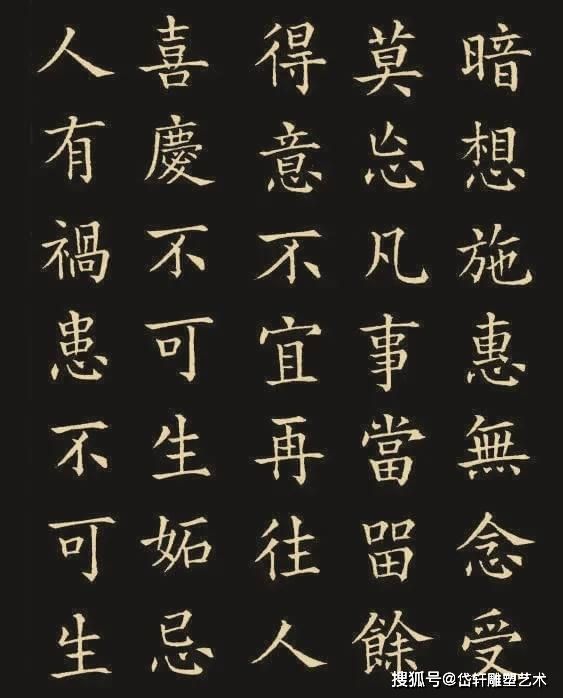 暗想施惠無念受
莫忘凡事當畱餘
得意不宜再往人
喜慶不可生妬忌
人有禍患不可生
搜狐号@岱轩雕塑艺术